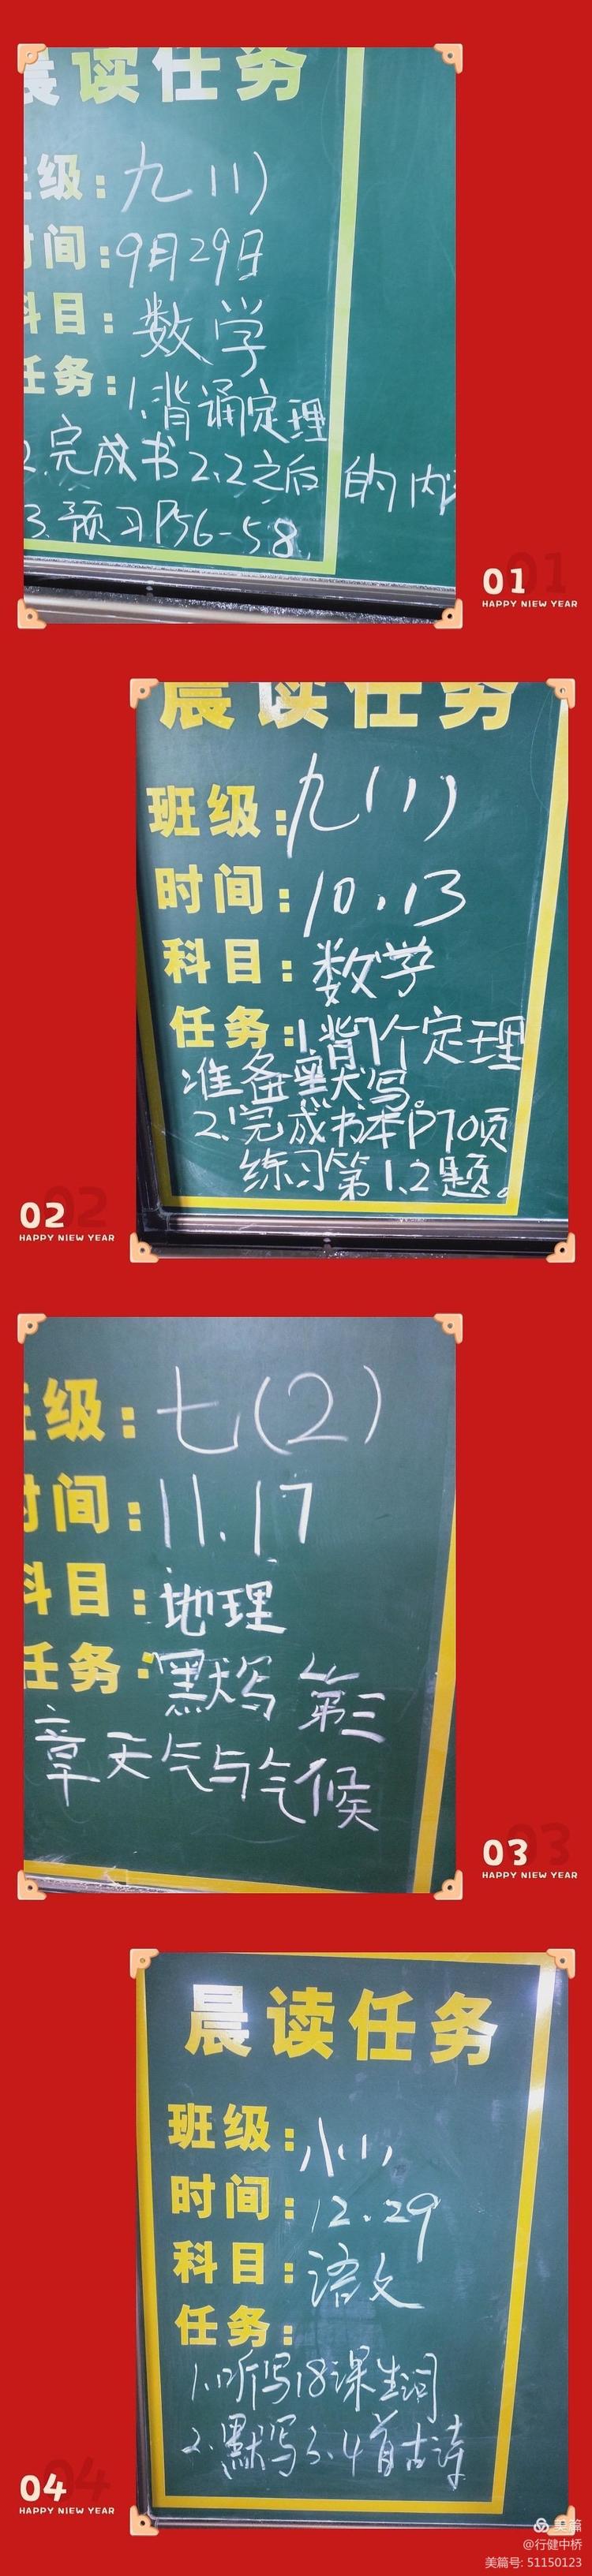 晨读任务
级：九（1）
时间：9月29日
科目：数学
任务：1.背诵定理
2.完成书2.2之后的内
3.预习P56-58.
01
HAPPY NIEW YEAR
晨读任务
班级：九（1）
时间：10.13
科目：数学
任务：1背7个定理
准备默写。
2.完成书本P70页
练习第1.2题。
02
HAPPY NIEW YEAR
级：七（2）
时间：11.17
科目：地理
任务：默写第三
章天气与气候
03
HAPPY NIEW YEAR
晨读任务
班级：八（1）
时间：12.29
科目：语文
任务：
1.听写18课生词
2.默写3.4首古诗
04
HAPPY NIEW YEAR
美篇
@行健中桥
美篇号: 51150123